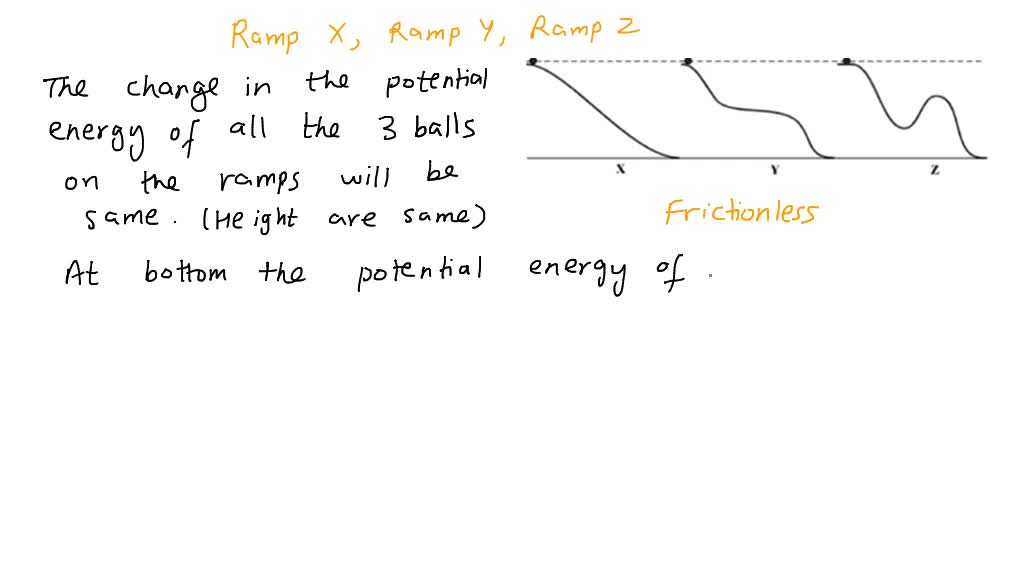 Ramp X, Ramp Y, Ramp Z
The change in the potential
energy of all the 3 balls
on the ramps will be
same. (Height are same)
X Y Z
Frictionless
At bottom the potential energy of